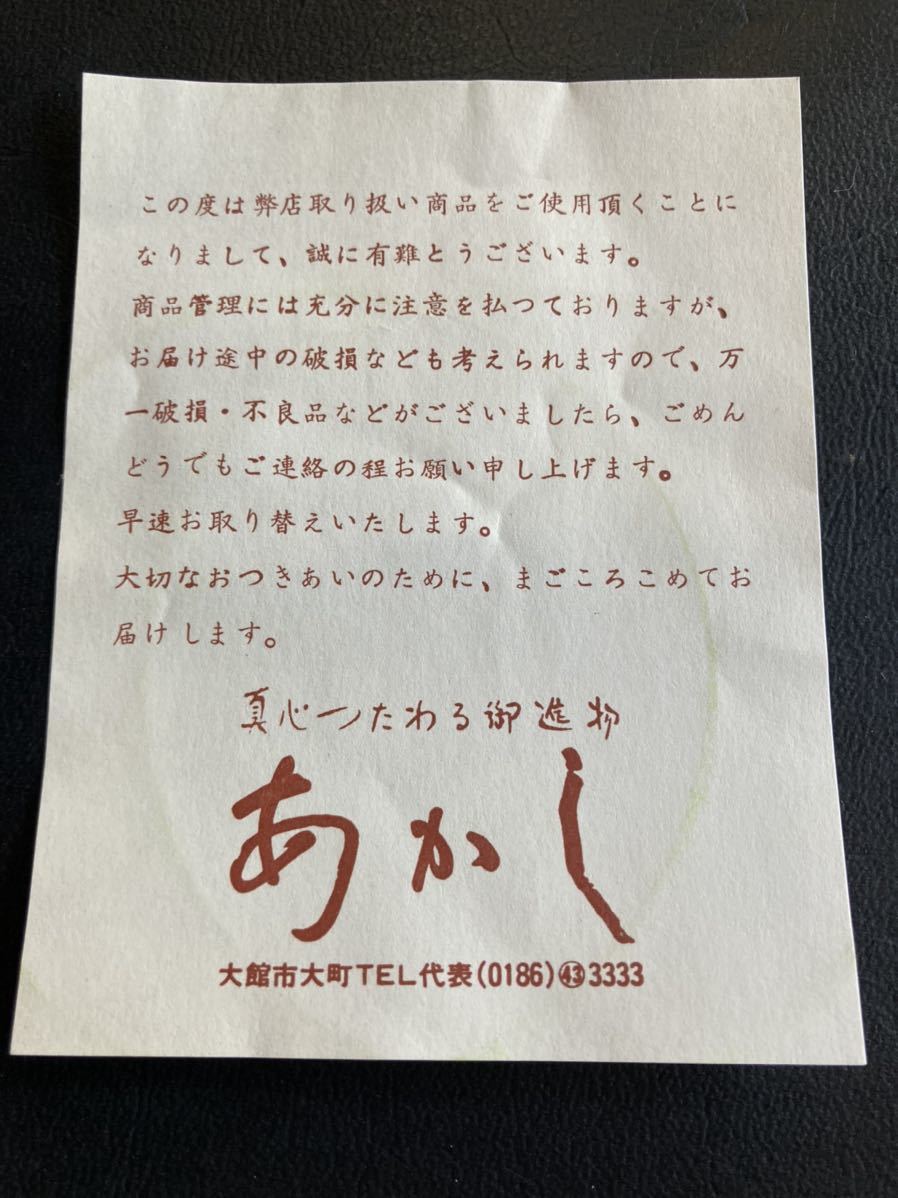 この度は弊店取り扱い商品をご使用頂くことに
なりまして、誠に有難とうございます。
商品管理には充分に注意を払つておりますが、
お届け途中の破損なども考えられますので、万
一破損・不良品などがございましたら、ごめん
どうでもご連絡の程お願い申し上げます。
早速お取り替えいたします。
大切なおつきあいのために、まごころこめてお
届けします。
真心つたわる御進物
あかし
大館市大町TEL代表(0186)㊸3333